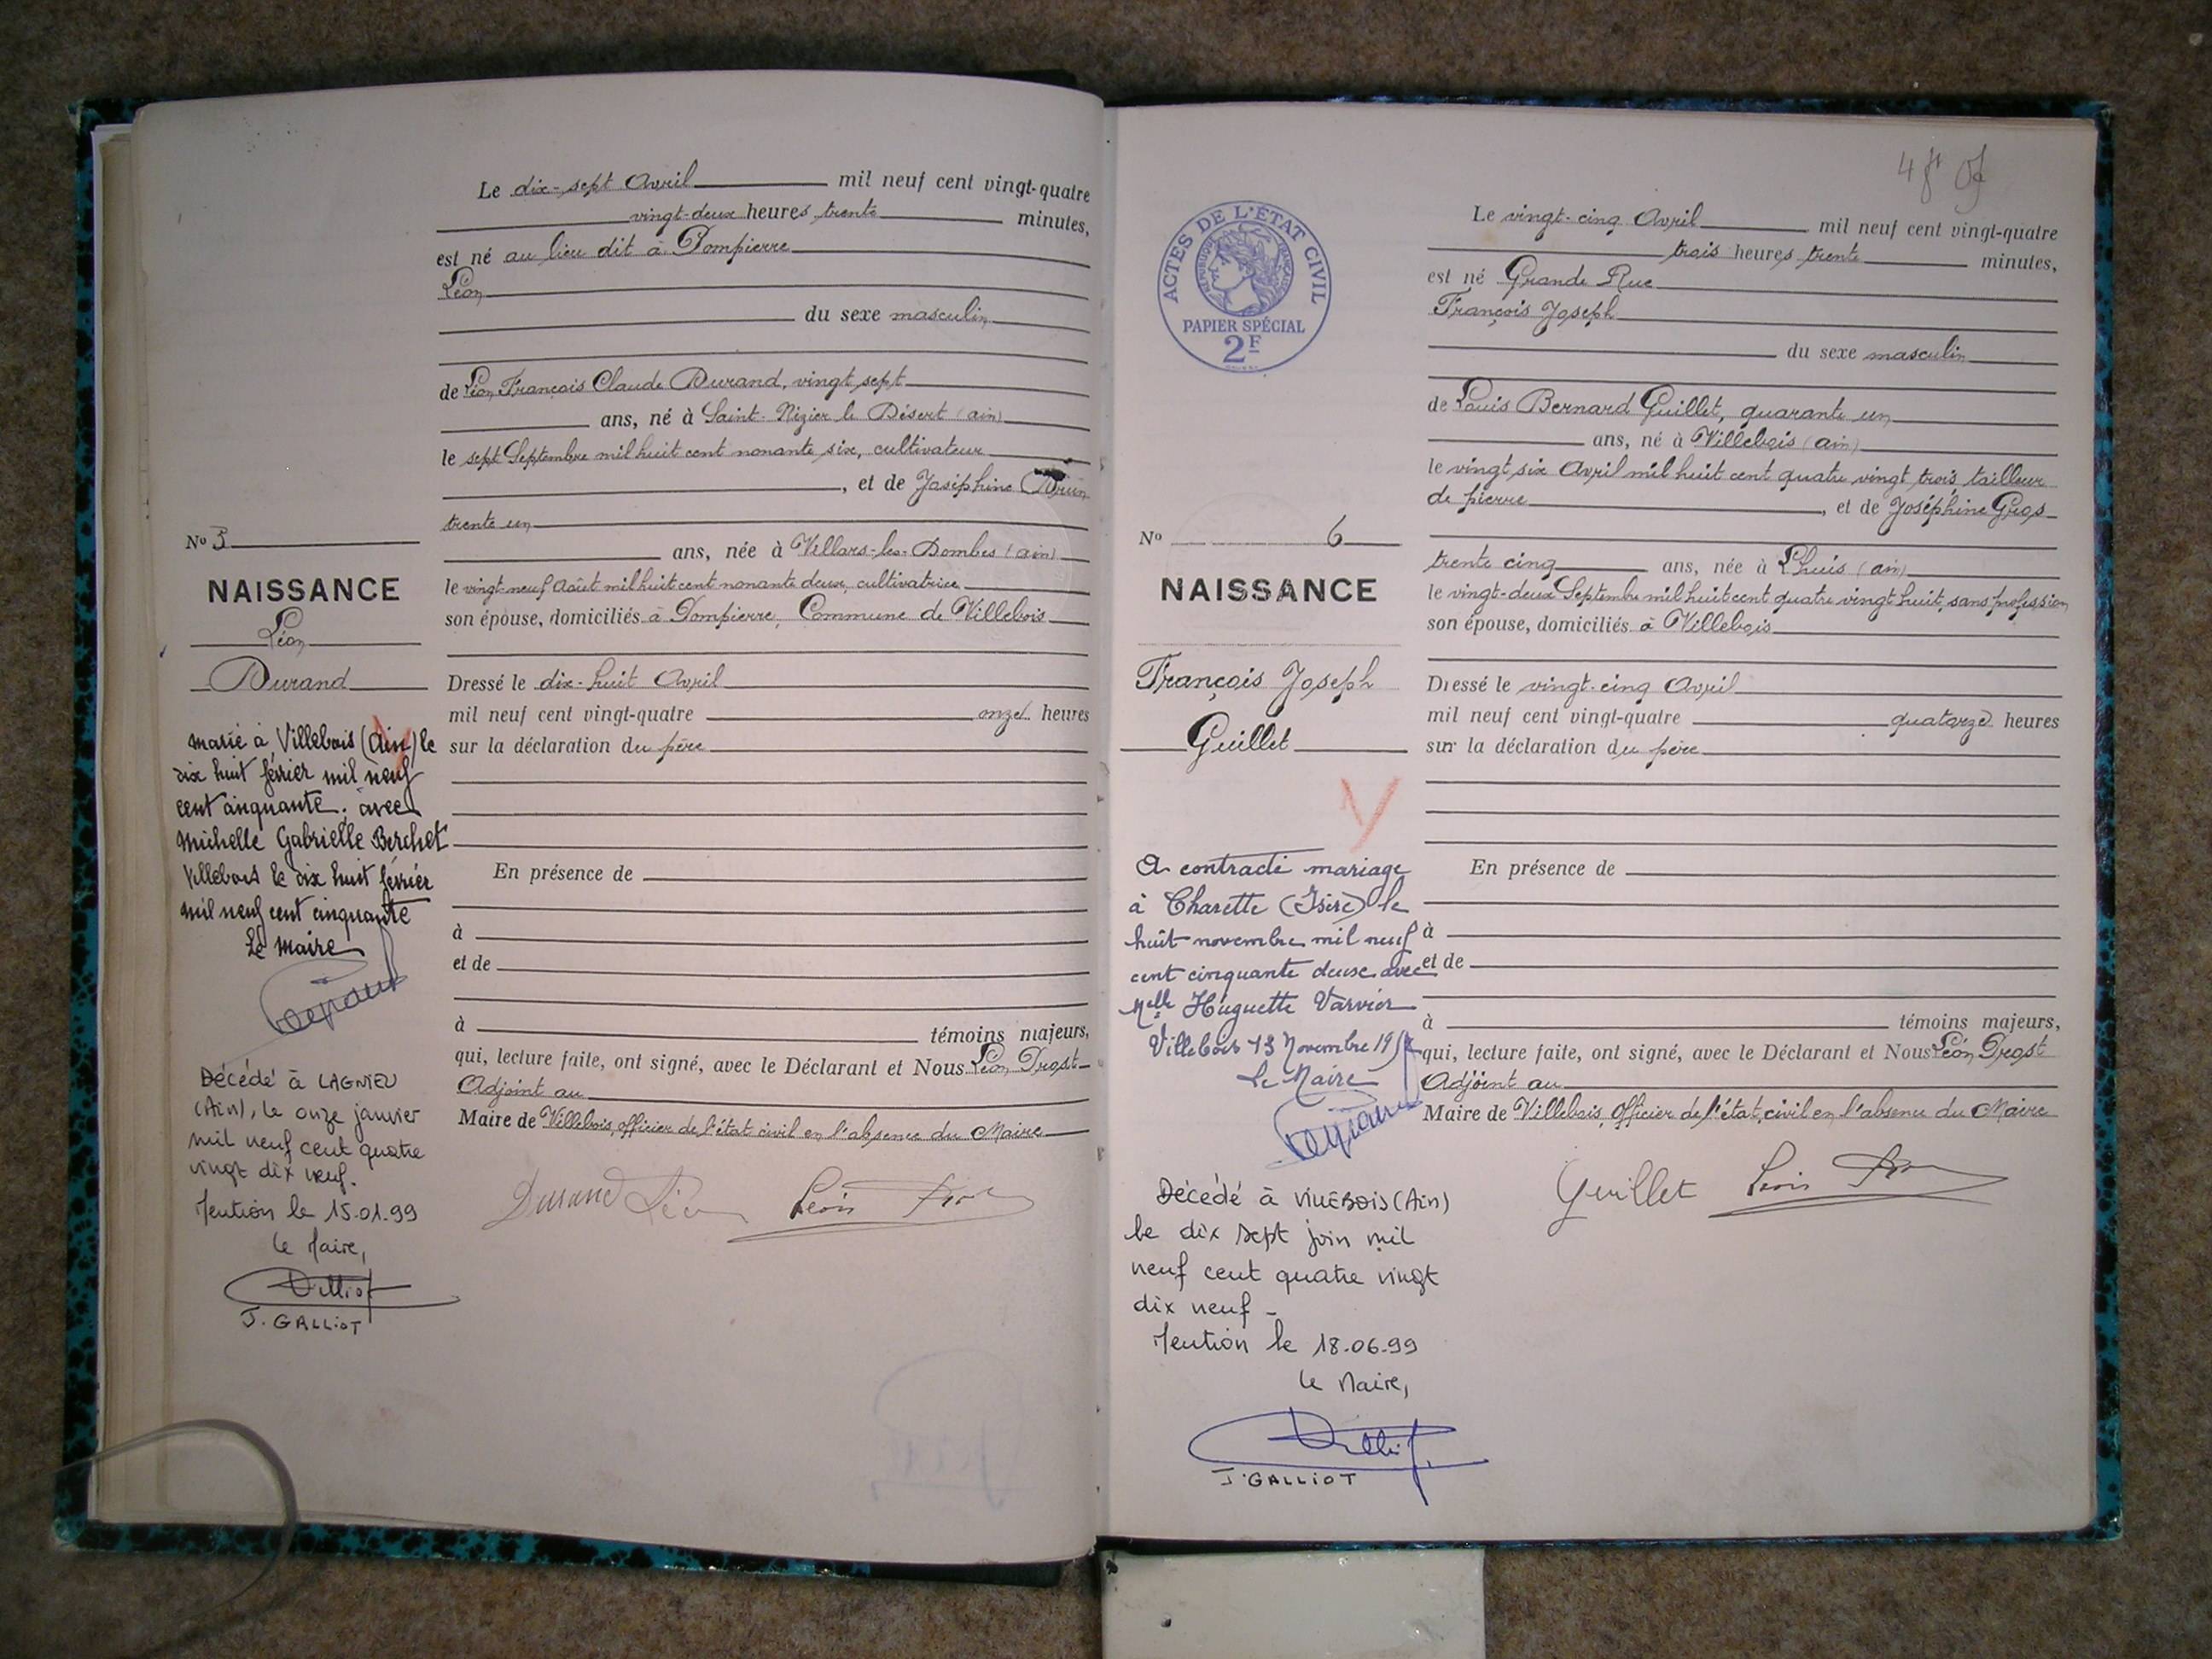 Le dix-sept Avril mil neuf cent vingt-quatre
vingt-deux heures trente minutes,
est né au lieu dit à Dompierre
Léon
du sexe masculin
de Léon François Claude Durand, vingt sept
ans, né à Saint-Nizier le Désert (ain)
le sept Septembre mil huit cent nonante six, cultivateur
, et de Joséphine
trente un
ans, née à Villars-les-Dombes (ain)
le vingt neuf Août mil huit cent nonante deux, cultivatrice
son épouse, domiciliés à Dompierre, Commune de Villebois
Dressé le dix-huit Avril
mil neuf cent vingt-quatre onze heures
sur la déclaration du père
En présence de
à
et de
à témoins majeurs,
qui, lecture faite, ont signé, avec le Déclarant et Nous Léon Drost
Adjoint au
Maire de Villebois, officier de l'état civil en l'absence du Maire
Durand Léon Léon
No
NAISSANCE
Léon
Durand
marié à Villebois (Ain) le
dix huit février mil neuf
cent cinquante. avec
Michelle Gabrielle Berchet
Villebois le dix huit février
mil neuf cent cinquante
Le Maire
Décédé à LAGNIEU
(Ain), le onze janvier
mil neuf cent quatre
vingt dix neuf.
Mention le 15.01.99
Le Maire,
J. GALLIOT
ACTES DE L'ÉTAT CIVIL
RÉPUBLIQUE FRANÇAISE
PAPIER SPÉCIAL
2F
Le vingt-cinq Avril mil neuf cent vingt-quatre
trois heures trente minutes,
est né Grande Rue
François Joseph
du sexe masculin
de Louis Bernard Guillet, quarante un
ans, né à Villebois (ain)
le vingt six Avril mil huit cent quatre vingt trois tailleur
de pierre, et de Joséphine Gros
trente cinq ans, née à Lhuis (ain)
le vingt-deux Septembre mil huit cent quatre vingt huit, sans profession
son épouse, domiciliés à Villebois
Dressé le vingt-cinq Avril
mil neuf cent vingt-quatre quatorze heures
sur la déclaration du père
En présence de
à
et de
à témoins majeurs,
qui, lecture faite, ont signé, avec le Déclarant et Nous Léon Drost
Adjoint au
Maire de Villebois, officier de l'état civil en l'absence du Maire
Guillet Léon
No 6
NAISSANCE
François Joseph
Guillet
A contracté mariage
à Charette (Isère) le
huit novembre mil neuf
cent cinquante deux avec
Melle Huguette Varvier
Villebois 13 Novembre
Le Maire
Décédé à VILLEBOIS (Ain)
le dix sept juin mil
neuf cent quatre vingt
dix neuf -
Mention le 18.06.99
Le Maire,
J. GALLIOT